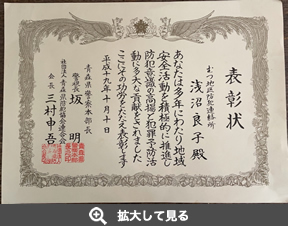 表彰状
むつ地区防犯連絡所
浅沼良子殿
あなたは多年にわたり地域
安全活動を積極的に推進し
防犯意識の高揚と犯罪予防活
動に多大な貢献をされました
ここにその功労をたたえ表彰します
平成十九年十月十日
青森県警察本部長
警視長 坂 明
社団法人青森県防犯協会連合会
会長 三村申吾
拡大して見る